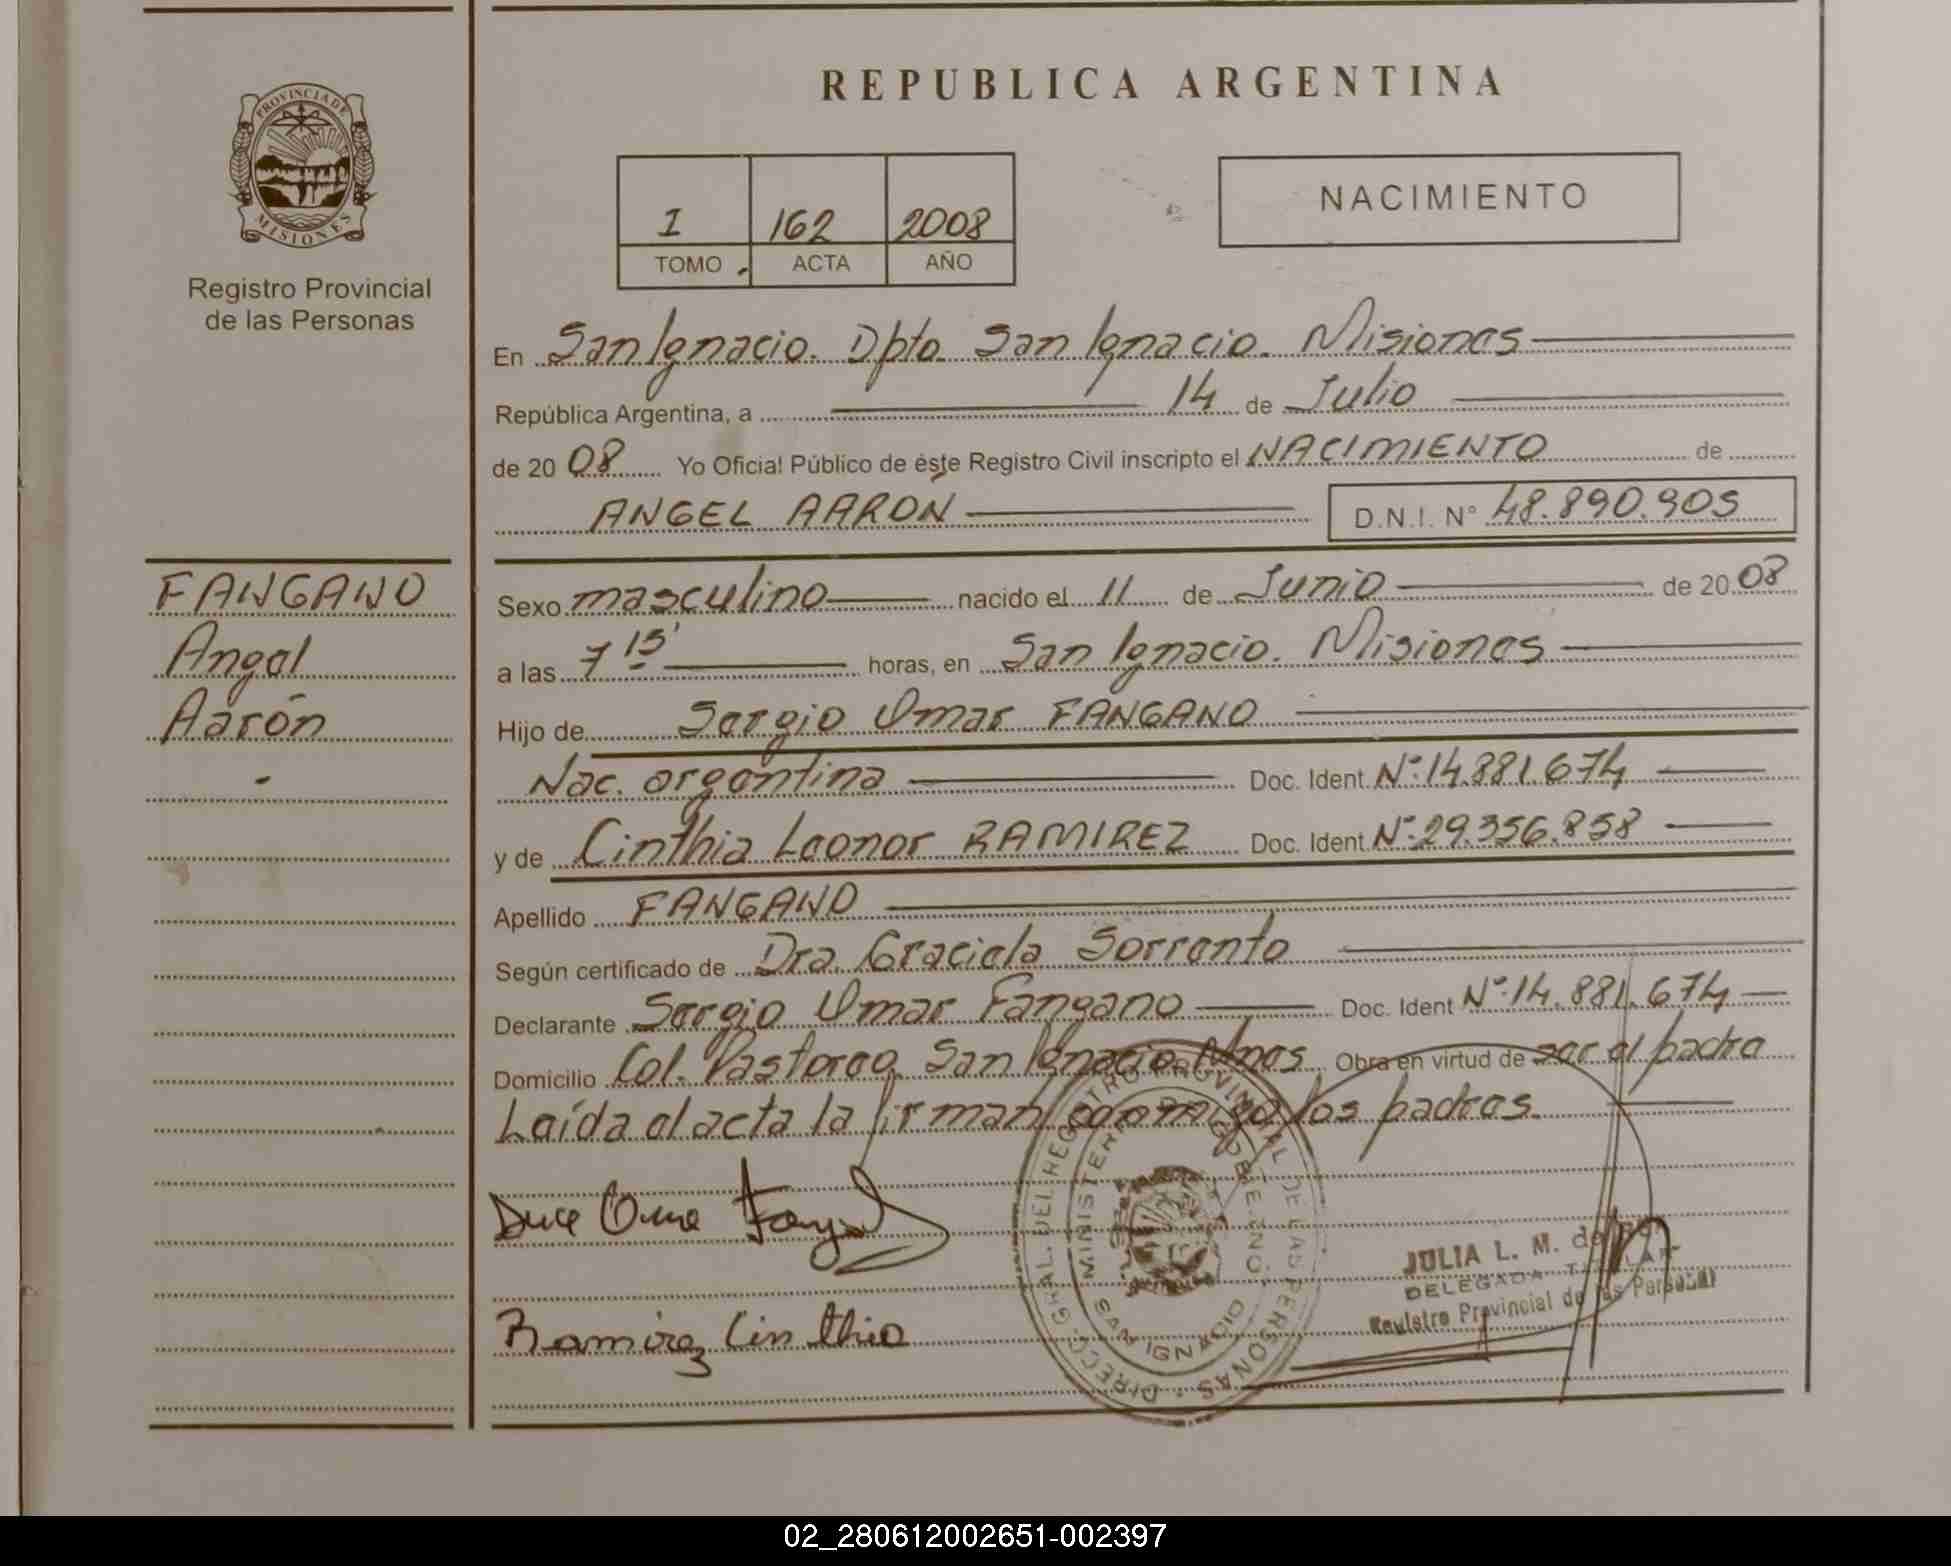 PROVINCIA DE
MISIONES
Registro Provincial
de las Personas
FANGANO
Angel
Aarón
-
REPUBLICA ARGENTINA
I 162 2008
TOMO ACTA AÑO
NACIMIENTO
En San Ignacio. Dpto San Ignacio. Misiones
República Argentina, a 14 de Julio
de 20 08 Yo Oficial Público de éste Registro Civil inscripto el NACIMIENTO de
ANGEL AARÓN D.N.I. N° 48.890.905
Sexo masculino nacido el 11 de Junio de 20 08
a las 7 15' horas, en San Ignacio. Misiones
Hijo de Sergio Omar FANGANO
Nac. argentina Doc. Ident. N°:14.881.674
y de Cinthia Leonor RAMIREZ Doc. Ident. N°:29.356.858
Apellido FANGANO
Según certificado de Dra. Graciela Sorrento
Declarante Sergio Omar Fangano Doc. Ident N°:14.881.674
Domicilio Col. Pastoreo. San Ignacio. Mnes Obra en virtud de ser el padre
Leída el acta la firman conmigo los padres.
Ramirez Cinthia
DIRECC. GRAL. DEL REGISTRO PROVINCIAL DE LAS PERSONAS
MINISTERIO DE GOBIERNO
SAN IGNACIO
JULIA L. M. de
DELEGADA TITULAR
Registro Provincial de las Personas
02_280612002651-002397